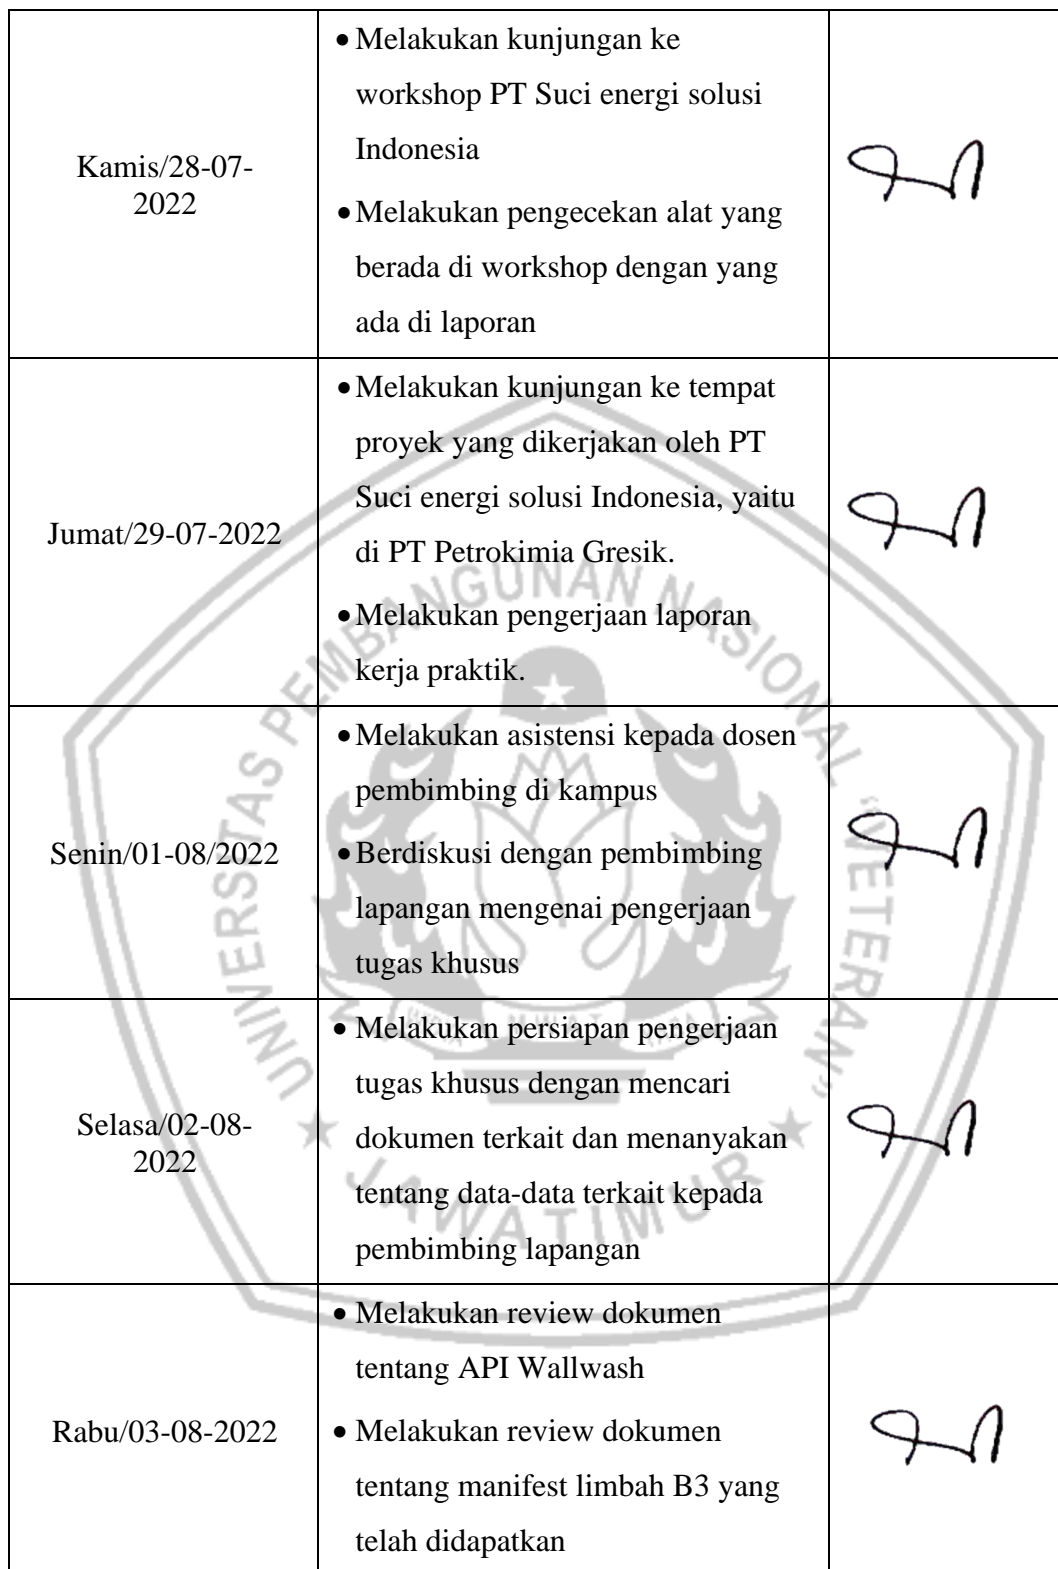 Kamis/28-07-
2022
• Melakukan kunjungan ke
workshop PT Suci energi solusi
Indonesia
• Melakukan pengecekan alat yang
berada di workshop dengan yang
ada di laporan
Jumat/29-07-2022
• Melakukan kunjungan ke tempat
proyek yang dikerjakan oleh PT
Suci energi solusi Indonesia, yaitu
di PT Petrokimia Gresik.
• Melakukan pengerjaan laporan
kerja praktik.
Senin/01-08/2022
• Melakukan asistensi kepada dosen
pembimbing di kampus
• Berdiskusi dengan pembimbing
lapangan mengenai pengerjaan
tugas khusus
Selasa/02-08-
2022
• Melakukan persiapan pengerjaan
tugas khusus dengan mencari
dokumen terkait dan menanyakan
tentang data-data terkait kepada
pembimbing lapangan
Rabu/03-08-2022
• Melakukan review dokumen
tentang API Wallwash
• Melakukan review dokumen
tentang manifest limbah B3 yang
telah didapatkan
UNIVERSITAS PEMBANGUNAN NASIONAL "VETERAN"
JAWA TIMUR